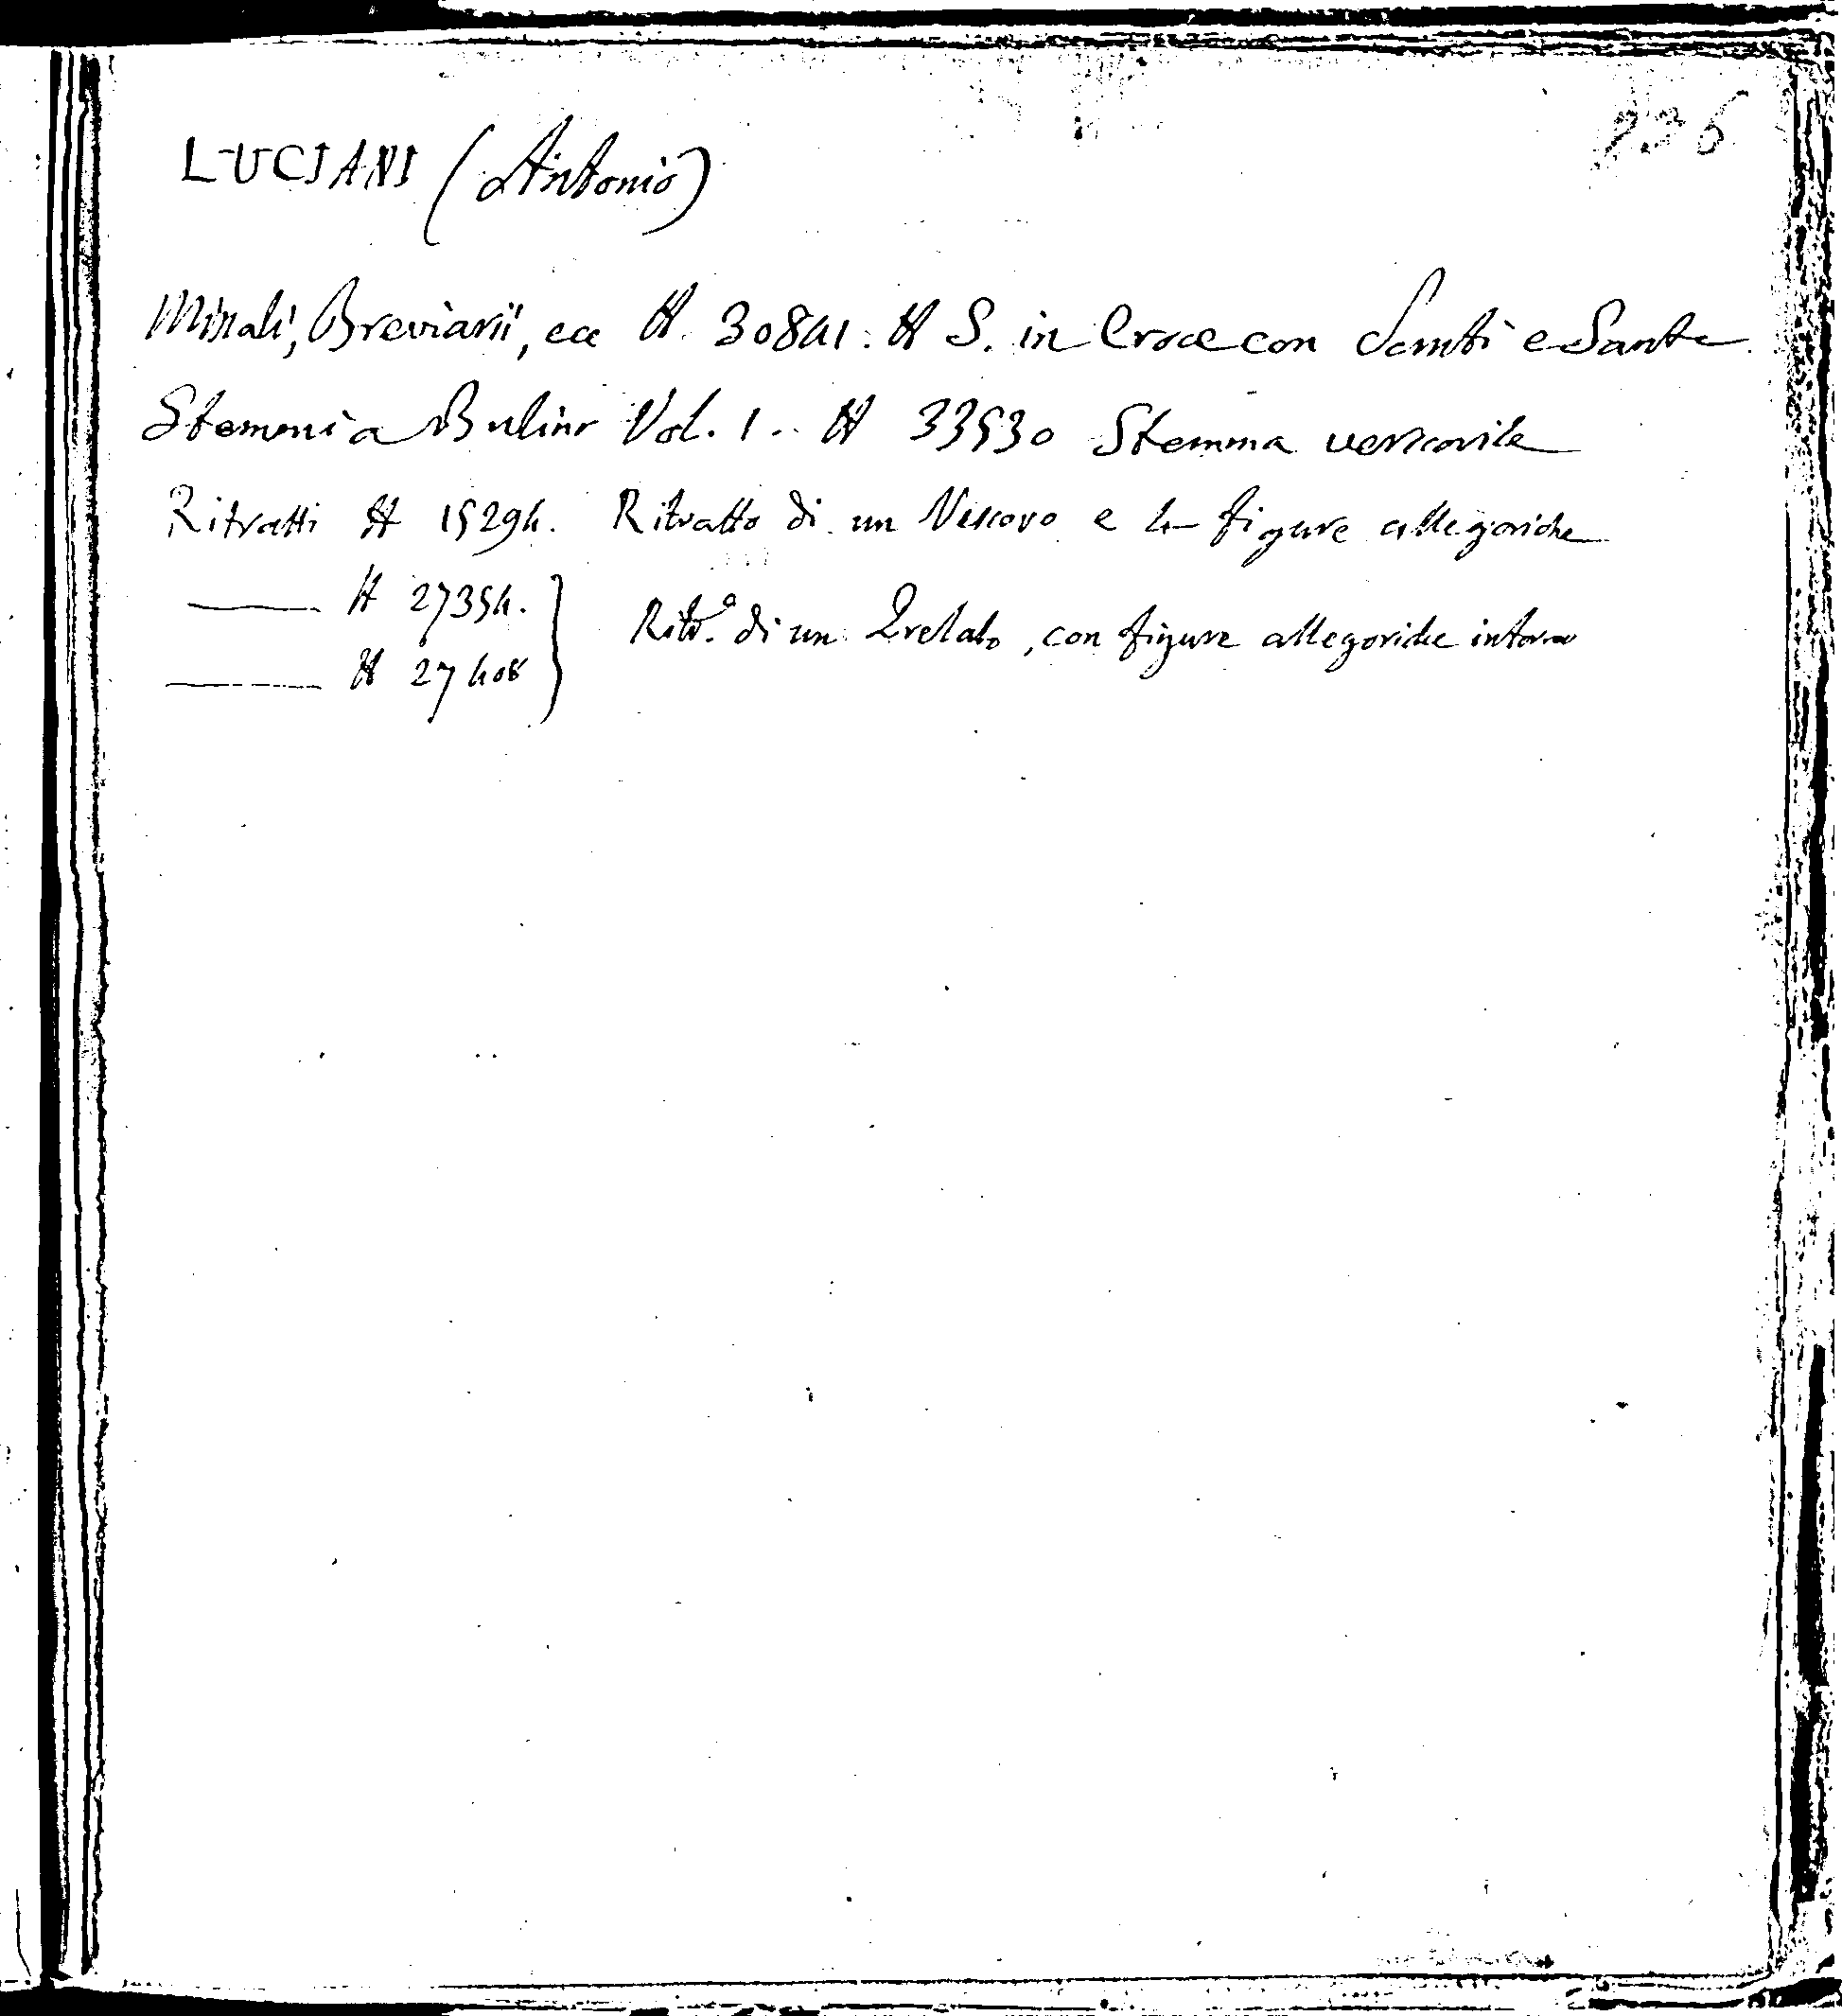 236
LUCIANI (Antonio)
Missali, Breviarii, ecc H. 30841. H S. in Croce con Santi e Sante
Stemmi a Bulino Vol. 1. H 33530 Stemma vescovile
Ritratti H 15294. Ritratto di un Vescovo e 4 figure allegoriche
—— H 27354. } Ritr.º di un Prelato, con figure allegoriche intorno
—— H 27408